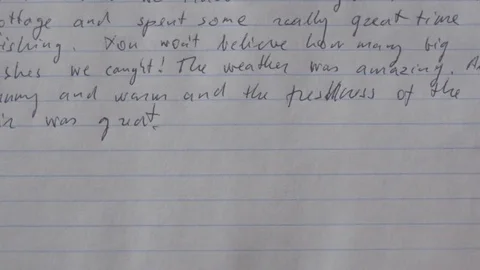 ottage and spent some really great time
ishing. You won't believe how many big
ishes we caught! The weather was amazing.
unny and warm and the freshness of the
ir was great!